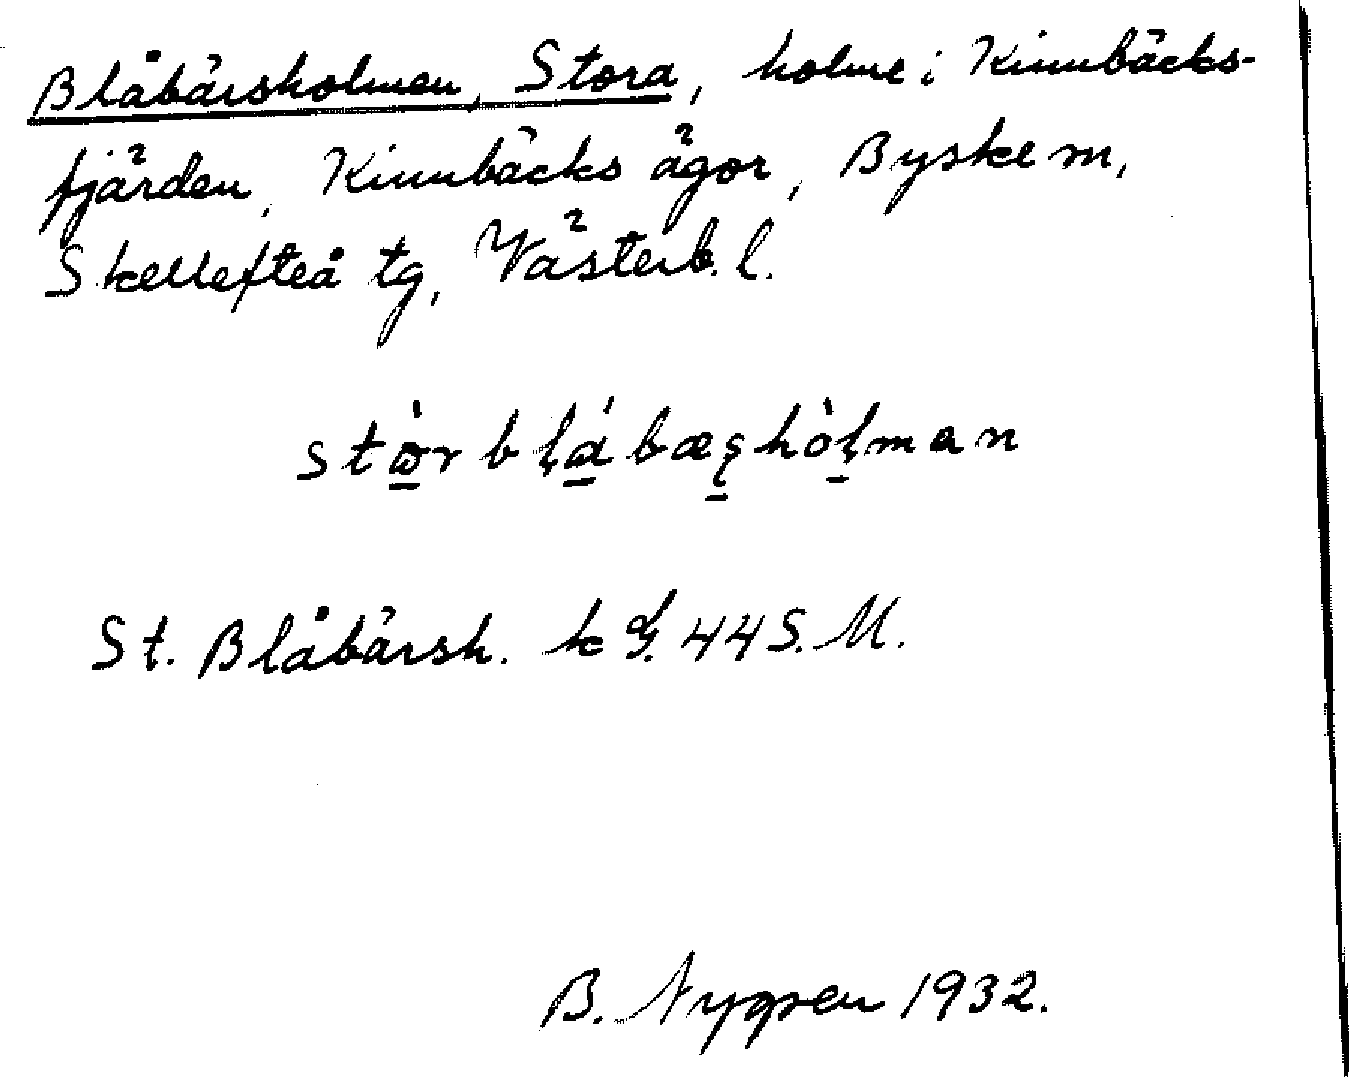 Blåbärsholmen, Stora, holme i Kinnbäcks-
fjärden, Kinnbäcks ägor, Byske m,
Skellefteå tg, Västerb. l.
stòrblábæşhòlman
St. Blåbärsh. k G. 44 S. M.
B. Nygren 1932.